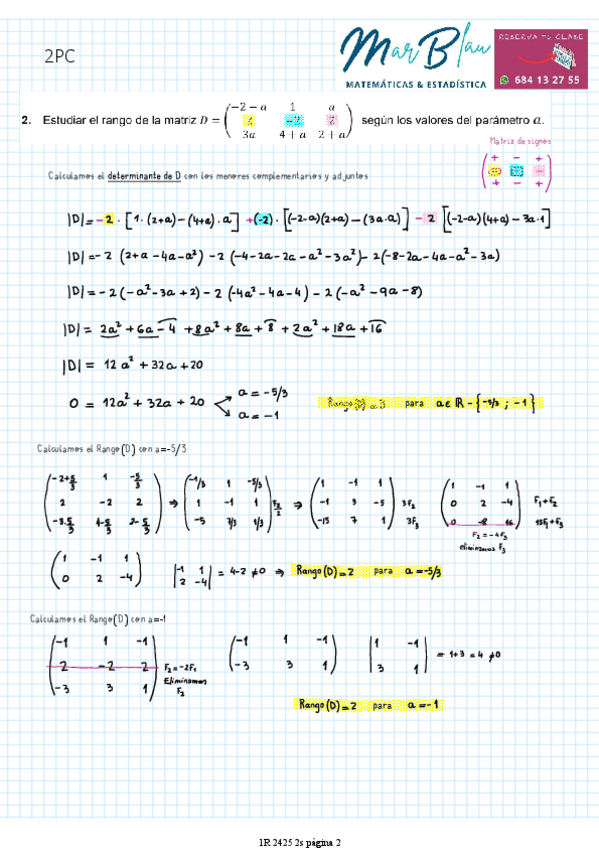 2PC
Mar Blau
MATEMÁTICAS & ESTADÍSTICA
RESERVA TU CLASE
684 13 27 55
2. Estudiar el rango de la matriz D = (−2 − a 1 a
2 −2 2
3a 4 + a 2 + a) según los valores del parámetro a.
Matriz de signos
+ − +
Calculamos el determinante de D con los menores complementarios y adjuntos
|D| = −2 · [1·(2+a)−(4+a)·a] +(−2)·[(−2−a)(2+a)−(3a·a)] −2 [(−2−a)(4+a)−3a·1]
|D| = −2 (2+a−4a−a²) −2 (−4−2a−2a−a²−3a²) −2(−8−2a−4a−a²−3a)
|D| = −2 (−a²−3a+2) −2 (−4a²−4a−4) −2 (−a²−9a−8)
|D| = 2a²+6a−4 +8a²+8a+8 +2a²+18a+16
|D| = 12a²+32a+20
0 = 12a²+32a+20
a = −5/3
a = −1
Rango(D) = 3 para a∈ℝ−{−5/3; −1}
Calculamos el Rango(D) con a=-5/3
(−2+5/3 1 −5/3
2 −2 2
−3·5/3 4−5/3 2−5/3) ⇒ (−1/3 1 −5/3
1 −1 1
−5 7/3 1/3) F₂/2 ⇒ (1 −1 1
−1 3 −5
−15 7 1) 3F₂ 3F₃ (1 −1 1
0 2 −4
0 −8 16) F₁+F₂ 15F₁+F₃
F₂=−4F₃
eliminamos F₃
(1 −1 1
0 2 −4) |−1 1
2 −4| = 4−2 ≠0 ⇒ Rango(D)=2 para a=−5/3
Calculamos el Rango(D) con a=-1
(−1 1 −1
2 −2 2
−3 3 1) F₂=−2F₁
Eliminamos
F₂
(−1 1 −1
−3 3 1) |1 −1
3 1| = 1+3=4 ≠0
Rango(D)=2 para a=−1
1R 2425 2s página 2